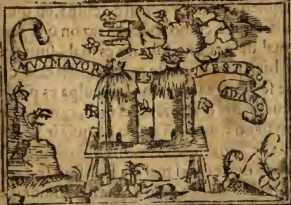 MVYNAYOR ES VESTRO